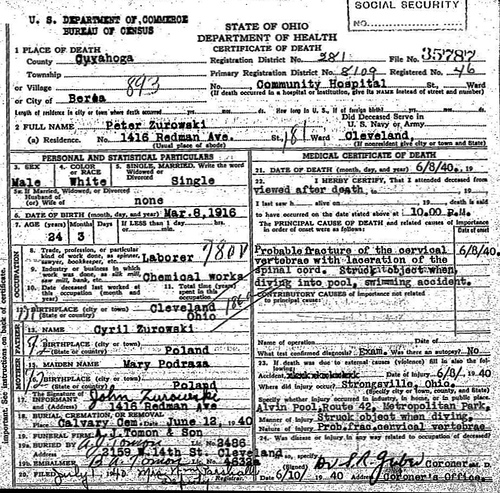 SOCIAL SECURITY
NO.
U. S. DEPARTMENT OF COMMERCE
BUREAU OF CENSUS
STATE OF OHIO
DEPARTMENT OF HEALTH
CERTIFICATE OF DEATH
1 PLACE OF DEATH
County Cuyahoga
Registration District No. 281
File No. 35787
Township
Primary Registration District No. 8109
Registered No. 46
or Village 893
No. Community Hospital St., Ward
or City of Berea
(If death occurred in a hospital or institution, give its NAME instead of street and number)
Length of residence in city or town where death occurred
How long in U. S., if of foreign birth?
2 FULL NAME Peter Zurowski
Did Deceased Serve in U. S. Navy or Army
(a) Residence. No. 1416 Redman Ave. St., 181 Ward Cleveland,
(Usual place of abode)
(If nonresident give city or town and State)
PERSONAL AND STATISTICAL PARTICULARS
3. SEX Male
4. COLOR OR RACE White
5. SINGLE, MARRIED, Widowed or Divorced Single
5a. If Married, Widowed, or Divorced
Husband of
(or) Wife of none
6. DATE OF BIRTH (month, day, and year) Mar. 8, 1916
7. AGE 24 3
If LESS than 1 day
8. Trade, profession, or particular kind of work done, as spinner, sawyer, bookkeeper, etc. Laborer
9. Industry or business in which work was done, as silk mill, saw mill, bank, etc. Chemical works
10. Date deceased last worked at this occupation (month and year)
11. Total time (years) spent in this occupation
12. BIRTHPLACE (city or town) Cleveland
(State or country) Ohio
13. NAME Cyril Zurowski
14. BIRTHPLACE (city or town)
(State or country) Poland
15. MAIDEN NAME Mary Podraza
16. BIRTHPLACE (city or town)
(State or country) Poland
17. The Signature of INFORMANT John Zurowski
and (Address) 1416 Redman Ave
18. BURIAL, CREMATION, OR REMOVAL
Calvary Cem. June 12, 1940
19. FUNERAL FIRM J. J. Tomon & Son
19a. BURIED BY Lic. No. 2486
(Address) 2159 W. 14th St. Cleveland
19b. EMBALMER Lic. No.
20. FILED July 1940
MEDICAL CERTIFICATE OF DEATH
21. DATE OF DEATH (month, day, and year) 6/8/40. 19
22. I HEREBY CERTIFY, That I attended deceased from
viewed after death, 19 to , 19
I last saw h alive on , 19 , death is said
to have occurred on the date stated above at 10.00 P.M.
The PRINCIPAL CAUSE OF DEATH and related causes of importance in order of onset were as follows:
Date of onset
Probable fracture of the cervical 6/8/40.
vertebrae with laceration of the
spinal cord. Struck object when
diving into pool, swimming accident.
CONTRIBUTORY CAUSES of importance not related to principal cause:
Name of operation Date of
What test confirmed diagnosis? Exam. Was there an autopsy? No
23. If death was due to external causes (violence) fill in also the following:
Accident Date of injury 6/8/ 1940
Where did injury occur? Strongsville, Ohio.
(Specify city or town, county, and State)
Specify whether injury occurred in industry, in home, or in public place.
Alvin Pool, Route 42, Metropolitan Park,
Manner of Injury Struck object when diving.
Nature of Injury Prob. frac. cervical vertebrae
24. Was disease or injury in any way related to occupation of deceased?
Coroner M. D.
Date 6/10/ 1940 Address Coroner's Office.
OCCUPATION
FATHER
MOTHER